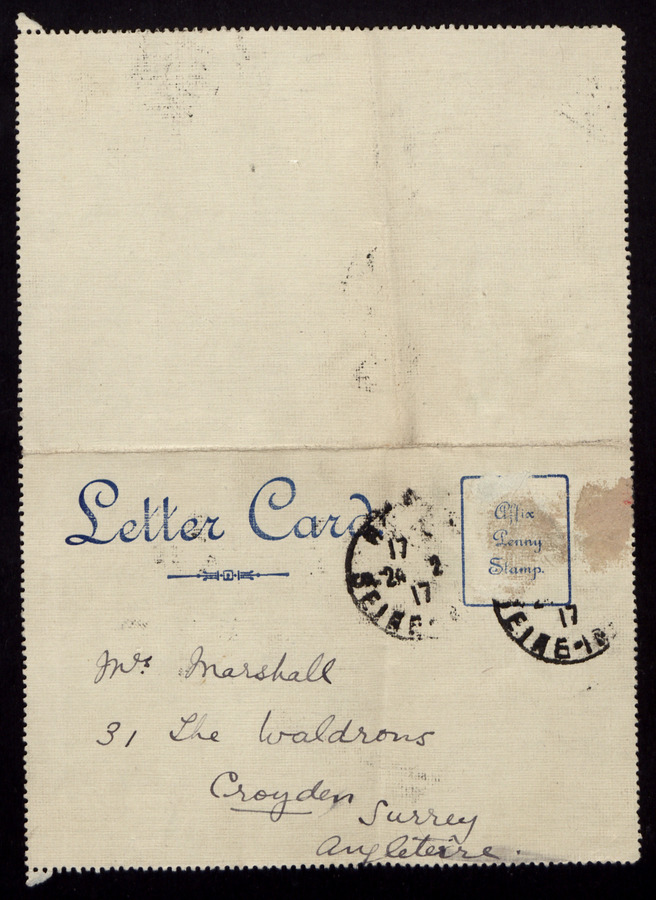 Letter Card
Affix
Penny
Stamp.
17
24 2
17
SEINE
17
SEINE-IN
Mrs Marshall
31 The Waldrons
Croyden
Surrey
Angleterre.